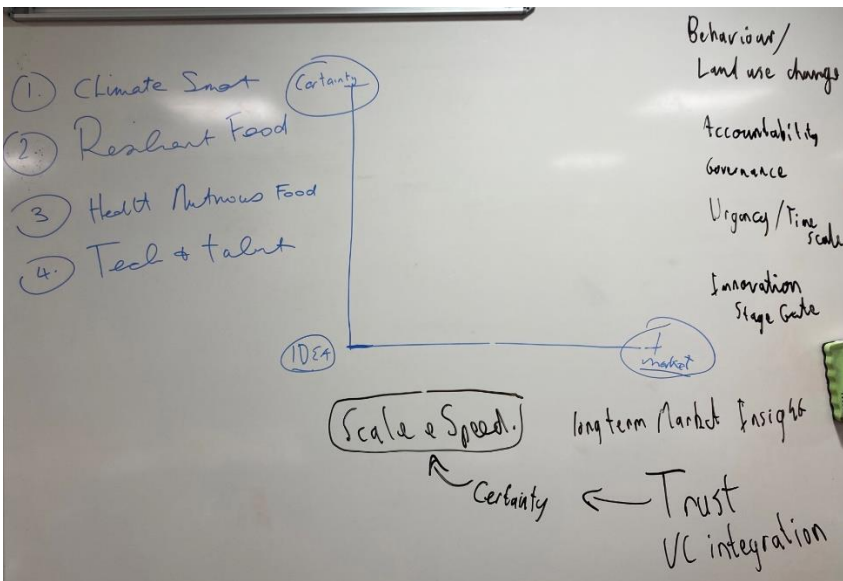 1. Climate Smart
2. Resilient Food
3 Health Nutrious Food
4. Tech & talent
Certainty
IDEA
market
Behaviour/
Land use change
Accountability
Governance
Urgency/Time
scale
Innovation
Stage Gate
Scale e Speed.
longterm Market Insight
Certainty
Trust
VC integration